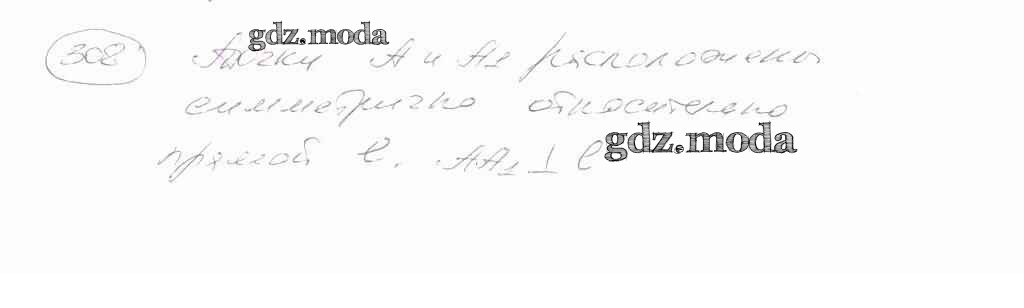 308 gdz.moda
Точки A и A1 расположены
симметрично относительно
прямой l. AA1 ⊥ l gdz.moda